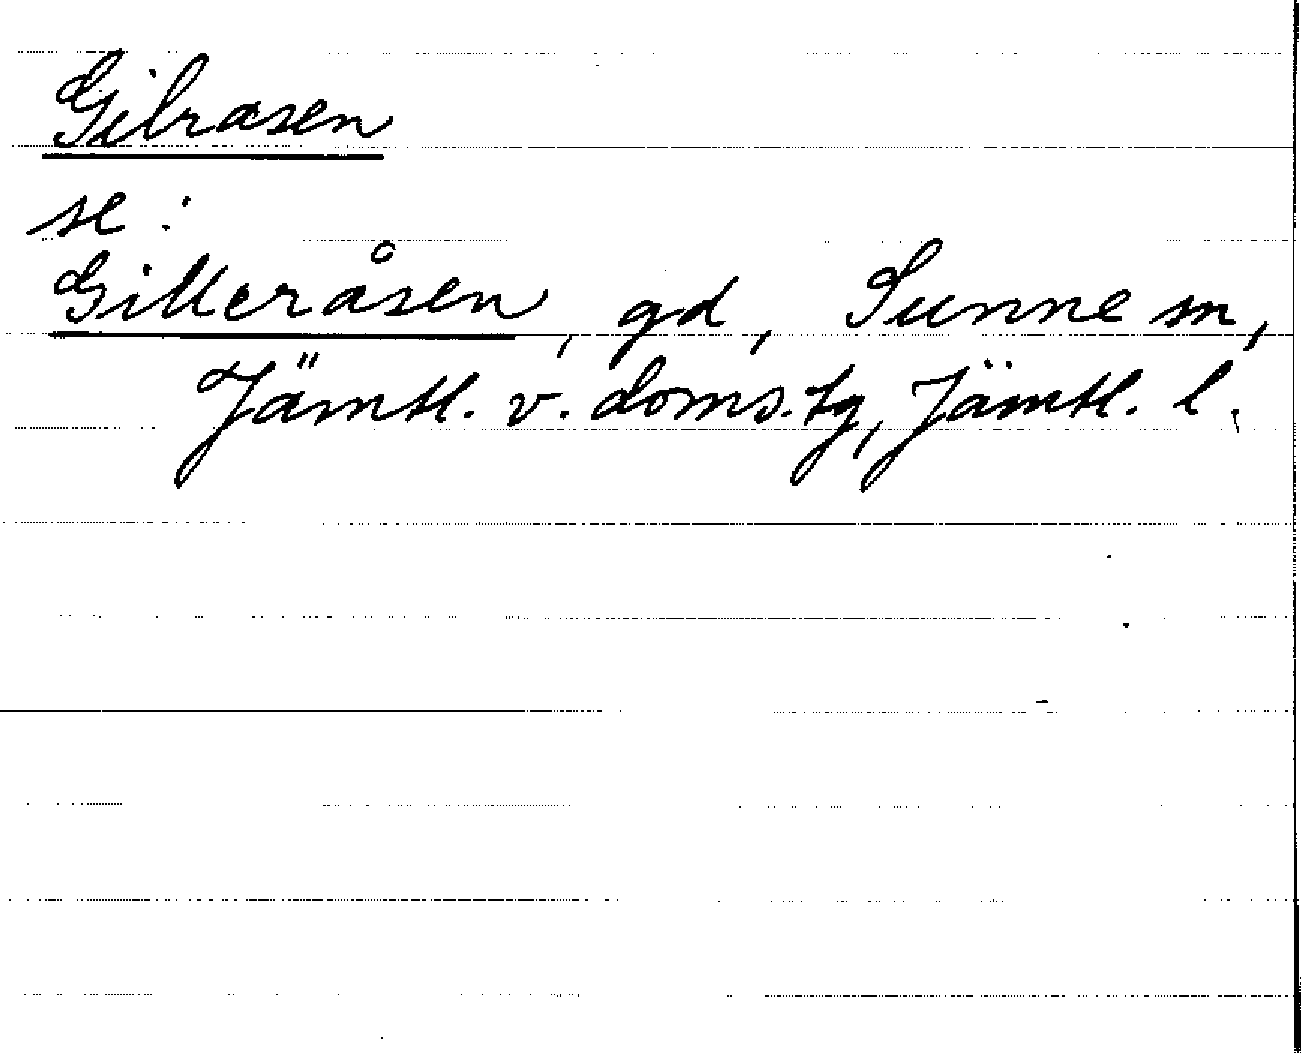 Gilrasen
se:
Gilleråsen, gd, Sunne sn,
Jämtl. v. doms.tg, Jämtl. l.